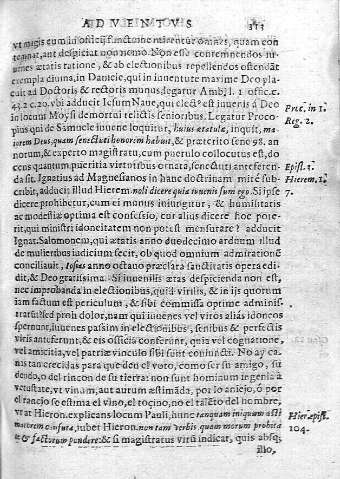 ADVENTVS
vt magis eum in officij functione mirentur omnes, quam contemnat, aut despiciat non nemo. Non esse contemnendos iuniores ætatis ratione, & ab electionibus repellendos ostendat
exempla diuina, in Daniele, qui in iuuentute maxime Deo placuit ad Doctoris & rectoris munus, legatur Ambſ. l. 1 offic. c.
43 2 c. 20. vbi adducit Iesum Naue, qui electꝰ est iuuenis à Deo
in locum Moysi demortui relictis senioribus. Legatur Procopius qui de Samuele iuuene loquitur, huius ætatula, inquit, maiorem Deus, quam senectuti honorem habuit, & præcipuè
Proc. in 1.
Reg. 2.
norum, & experto magistratu, cum puerulo collocutus est, docens quantum puerilis virtutibus ornata, senectuti anteferenda sit. Ignatius ad Magnesianos in hanc doctrinam mitè subscribit, adducit illud Hierem. noli dicere quia iuuenis sum ego. Si ipse
Epist. 1.
Hierem. 1.
7.
dicere prohibetur, cum ei munus iniungitur, & humilitatis
ac modestiæ optima est confessio, cur alius dicere hoc poterit, qui ministri idoneitatem non potest mensurare? adducit
Ignat. Salomonem, qui ætatis anno duodecimo arduum illud
de mulieribus iudicium fecit, ob quod omnium admirationem
conciliauit, Iosias anno octauo præclara sanctitatis opera edidit, & Deo gratissima. Si iuuenilis ætas despicienda non est,
nec improbanda in electionibus, quid virilis, & in ijs quorum
iam factum est periculum, & sibi commissa optime administrarunt sed proh dolor, nam qui iuuenes vel viros alias idoneos
spernunt, iuuenes passim in electionibus, senibus & perfectis
viris anteferunt, & eis officia conferunt, quia vel cognatione,
vel amicitia, vel patriæ vinculo sibi sunt coniuncti. No ay canas tan crecidas para que den el voto, como ser su amigo, su
deudo, o del rincon de su tierra: non sunt hominum ingenia à
vetustate, vt vinum, aut aurum æstimanda, por lo añejo, ó por
el rancio se estima el vino, el tocino, no el talento del hombre,
vtat Hieron. explicans locum Pauli, hunc tanquam iniquum
iubet Hieron. non tam verbis quam morum probitate & factorum pondere: & si magistratus virtù indicat, quis absq;
Hier. epist.
104.
illo,